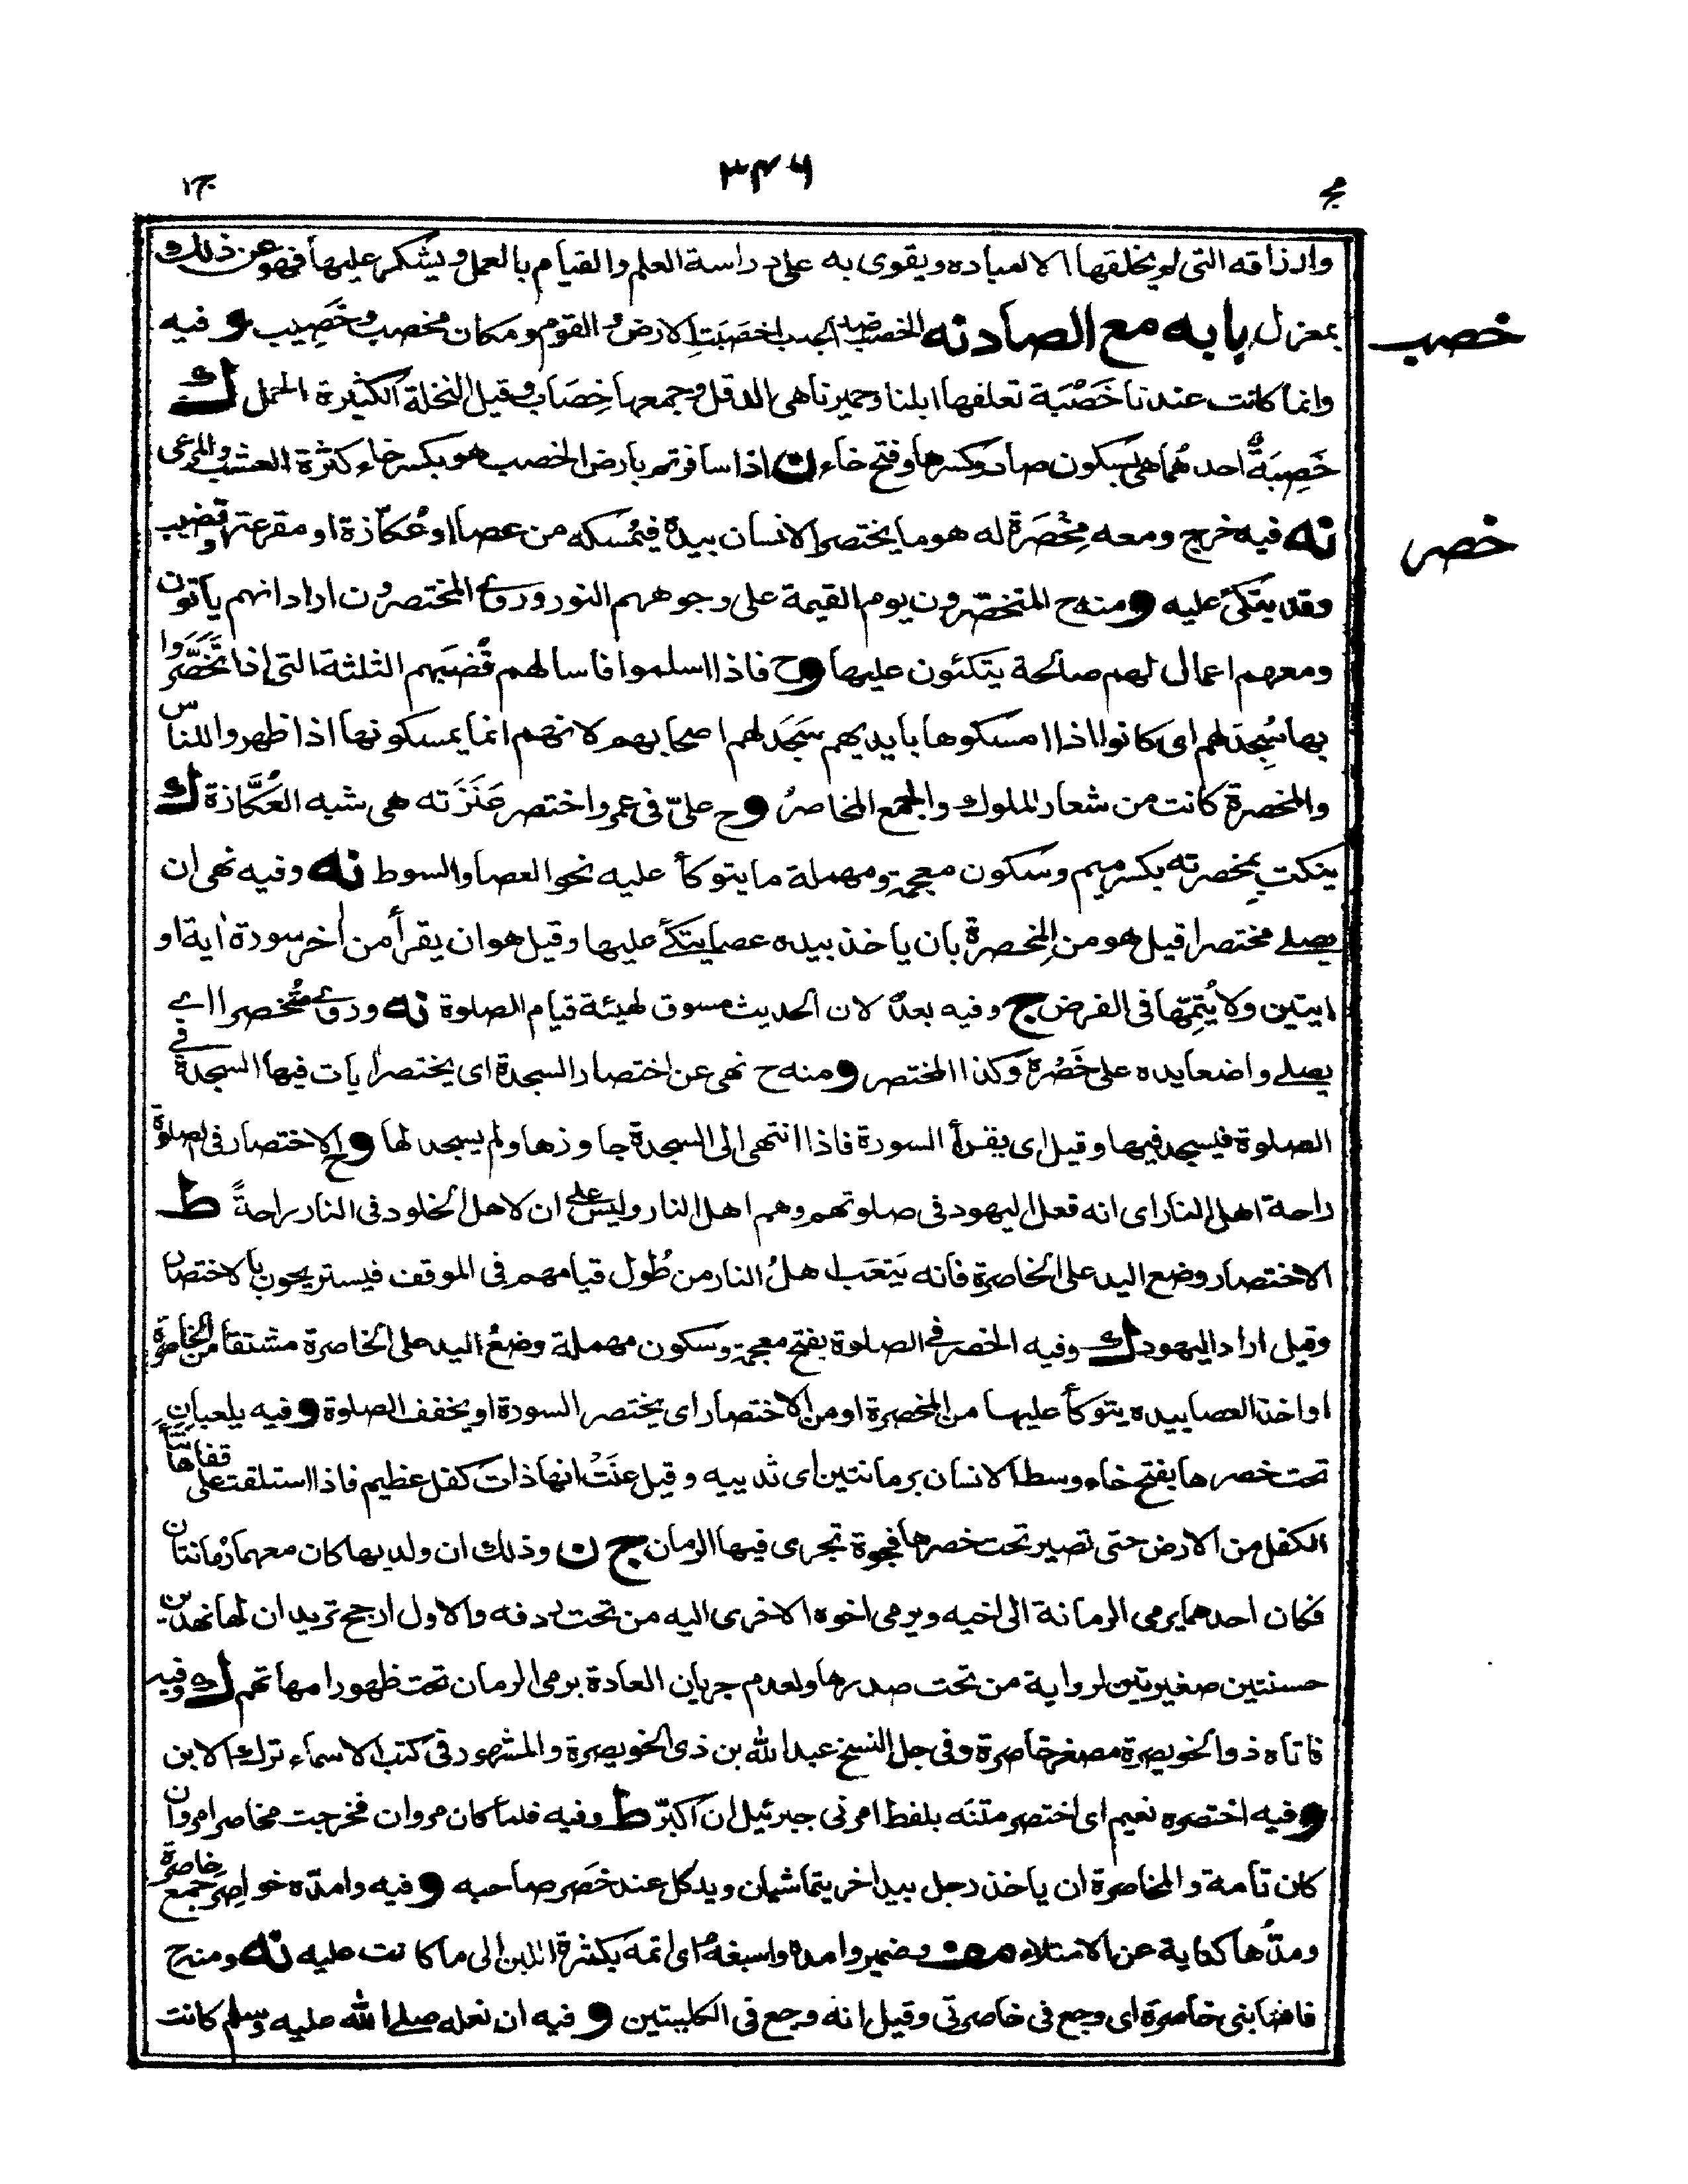 مج
٣٤٦
ج١
وارزاقه التى لم يخلقها الا لعباده ويقوى به على دراسة العلم والقيام بالعمل ويشكر عليها فهو عن ذلك
بمعزل بابه مع الصاد نه الخصب ضد الجدب اخصبت الارض والقوم ومكان مخصب وخَصِيب و فيه
خصب
وانما كانت عندنا خَصْبَة تعلفها ابلنا وحميرنا هى الدقل وجمعها خِصَاب وقيل النخلة الكثيرة الحمل ك
خَصِبَةٌ احدهُما هى بسكون صاد وكسرها وفتح خاء ن اذا سافرتم بارض الخصب هو بكسر خاء كثرة العشب والمرعى
نه فيه خرج ومعه مِخْصَرَة له هو ما يختصر الانسان بيده فيُمسكه من عصا او عُكّازة او مقرعة او قضيب
خصر
وقد يتكئ عليه و منه ح المتخصّرون يوم القيمة على وجوههم النور وروى المختصرون اراد انهم ياتون
ومعهم اعمال لهم صالحة يتكئون عليها و ح فاذا اسلموا فاسالهم قُضُبَهم الثلثة التى اذا تَخَصَّرُوا
بها سُجِدَ لهم اى كانوا اذا امسكوها بايديهم سَجَد لهم اصحابهم لانهم انما يمسكونها اذا ظهروا للناس
والمخصرة كانت من شعار الملوك والجمع المخاصرُ و ح علىّ فى عمر واختصر عَنَزَته هى شبه العُكَّازة ك
ينكت بمخصرته بكسر ميم وسكون معجمة ومهملة ما يتوكأ عليه نحو العصا والسوط نه وفيه نهى ان
يصلے مختصرا قيل هو من المِخصرة بان ياخذ بيده عصا يتكئ عليها وقيل هو ان يقرأ من أخر سورة أية او
ايتين ولا يُتِمّها فى الفرض ج وفيه بعدٌ لان الحديث مسوق لهيئة قيام الصلوة نه وروى مُتخصرا اے
يصلے واضعا يده على خَصْرة وكذا المختصر و منه ح نهى عن اختصار السجدة اى يختصر أيات فيها السجدة فے
الصلوة فيسجد فيها وقيل اى يقرأ السورة فاذا انتهى الى السجدة جاوزها ولم يسجد لها و ح الاختصار فى الصلوة
راحة اهل النار اى انه فعل اليهود فى صلوتهم وهم اهل النار وليس على ان لاهل الخلود فى النار راحةً ط
الاختصار وضع اليد على الخاصرة فانه يَتعَب اهلُ النار من طُول قيامهم فى الموقف فيستريحون بالاختصار
وقيل اراد اليهود ك وفيه الخصر فى الصلوة بفتح معجمة وسكون مهملة وضعُ اليد على الخاصرة مشتقا من الخاصرة
او اخذ العصا بيده يتوكأ عليها من المخصرة او من الاختصار اى يختصر السورة او يخفف الصلوة و فيه يلعبان
تحت خصرها بفتح خاء وسط الانسان برمانتين اى ثدييه وقيل عنَتْ انها ذات كفل عظيم فاذا استلقت على قفاها
الكفل من الارض حتى تصير تحت خصرها فجوة تجرى فيها الرمان ج ن وذلك ان ولديها كان معهما رُمانتان
فكان احدهما يرمى الرمانة الى اخيه ويرمى اخوه الاخرى اليه من تحت ردفه والاول ارجح تريد ان لها نهدين
حسنتين صغيرتين لرواية من تحت صدرها ولعدم جريان العادة برمى الرمان تحت ظهور امهاتهم ك وفيه
فاتاه ذوالخويصرة مصغر خاصرة وفى جل النسخ عبدالله بن ذى الخويصرة والمشهور فى كتب الاسماء ترك الابن
و فيه اختصره نعيم اى اختصر متنَه بلفظ امرنى جبرئيل ان اكبّر ط وفيه فلما كان مروان فخرجت مخاصرا مروان
كان تامة والمخاصرة ان ياخذ رجل بيد اخر يتماشيان ويد كل عند خَصر صاحبه و فيه وامدّه خواصر جمع خاصرة
ومدُّها كناية عن الامتلاء مف وضمير وامده واسبغه اى اتمه بكثرة اللبن الى ما كانت عليه نه ومنه ح
فاصابنى خاصرة اى وجع فى خاصرتى وقيل انه وجع فى الكليتين و فيه ان نعله صلے الله عليه وسلم كانت